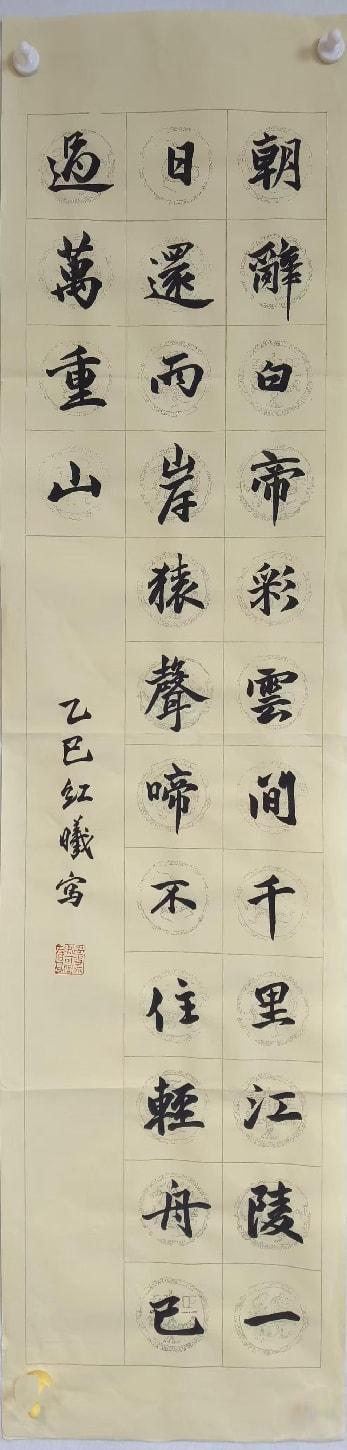 朝辭白帝彩雲間千里江陵一
日還兩岸猿聲啼不住輕舟已
過萬重山
乙巳紅曦寫